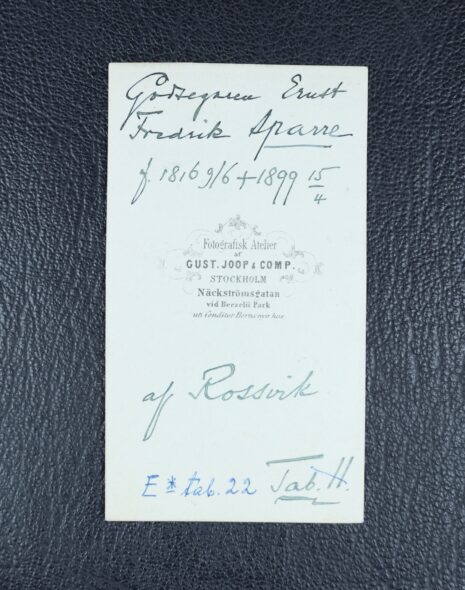 Godsegaren Ernst
Fredrik Sparre
f. 1816 9/6 + 1899 15/4
Fotografisk Atelier
af
GUST. JOOP & COMP.
STOCKHOLM
Näckströmsgatan
vid Berzelii Park
uti Conditor Berns nya hus
af Rossvik
E * tab. 22 Tab. H.